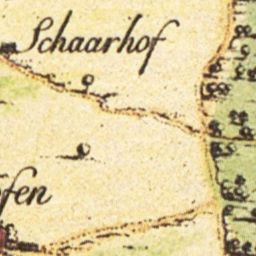 Schaarhof
fen